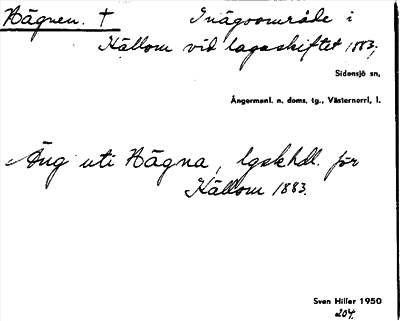 Hägnen. † Inägoområde i
Källom vid lagaskiftet 1883,
Sidensjö sn,
Ångermanl. n. doms. tg., Västernorrl. l.
Äng uti Hägna, lgskhdl. för
Källom 1883.
Sven Hiller 1950
204.